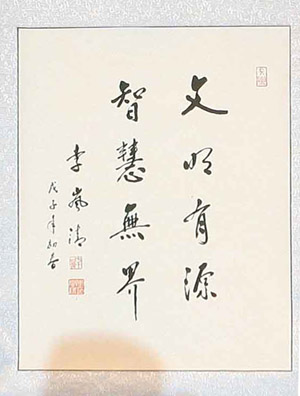 文明有源
智慧無界
李嵐清
戊子年初春